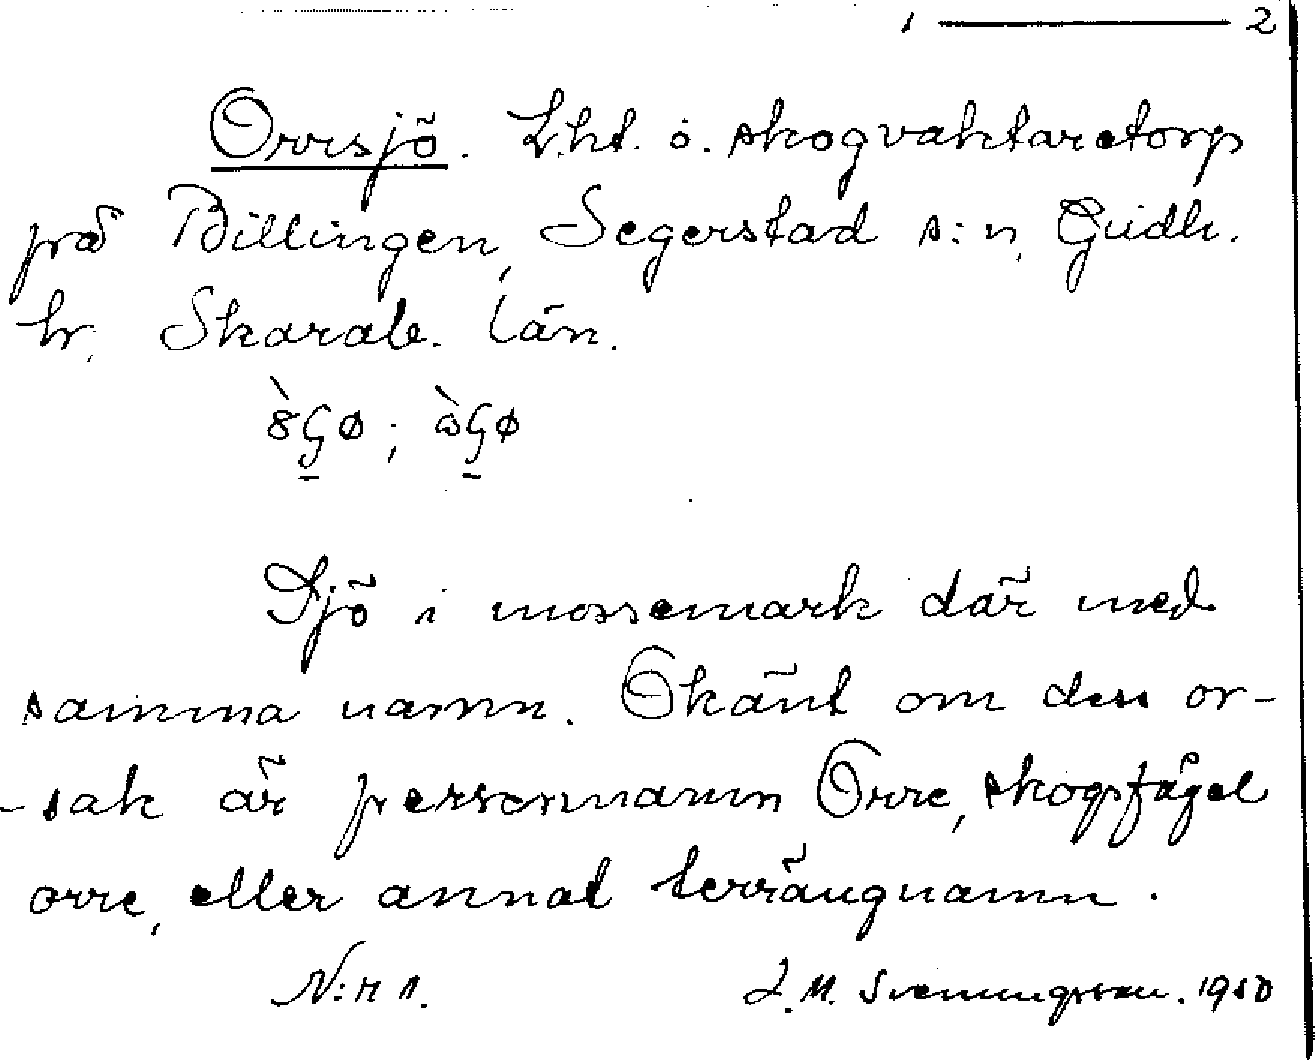 1 — 2
Orrsjö. Lht. o. skogvaktaretorp
på Billingen, Segerstad s:n, Gudh.
hr. Skarab. län.
Sjö i mossemark där med
samma namn. Okänt om den or-
-sak är personnamn Orre, skogsfågel
orre, eller annat terrängnamn.
N:r 1. L.M. Svenungsson. 1950